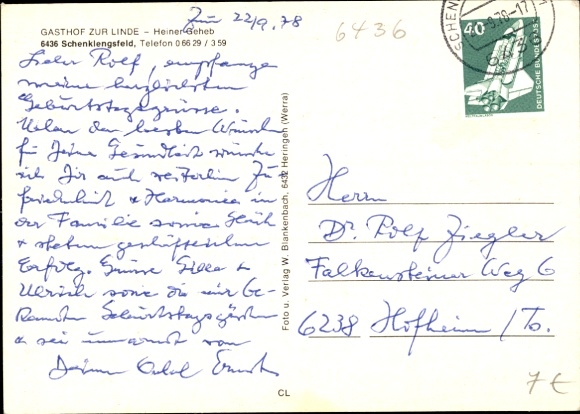 Zum 22/9.78
6436
GASTHOF ZUR LINDE – Heiner Geheb
6436 Schenklengsfeld, Telefon 0 66 29 / 3 59
Lieber Rolf, empfange
meine herzlichsten
Geburtstagsgrüsse.
Neben den besten Wünschen
für Deine Gesundheit wünsche
ich Dir auch weiterhin Zu-
friedenheit + Harmonie in
der Familie sowie Glück
+ stetem geschäftlichen
Erfolg. Grüsse Gisela +
Ulrich sowie die mir be-
kannten Geburtstagsgäste
+ sei umarmt von
Deinem Onkel Ernst
Foto u. Verlag W. Blankenbach, 6432 Heringen (Werra)
CL
SCHENK
-9.78-17
6436
40
DEUTSCHE BUNDESPOST
Herrn
Dr. Rolf Ziegler
Falkensteiner Weg 6
6238 Hofheim / Ts.
7€